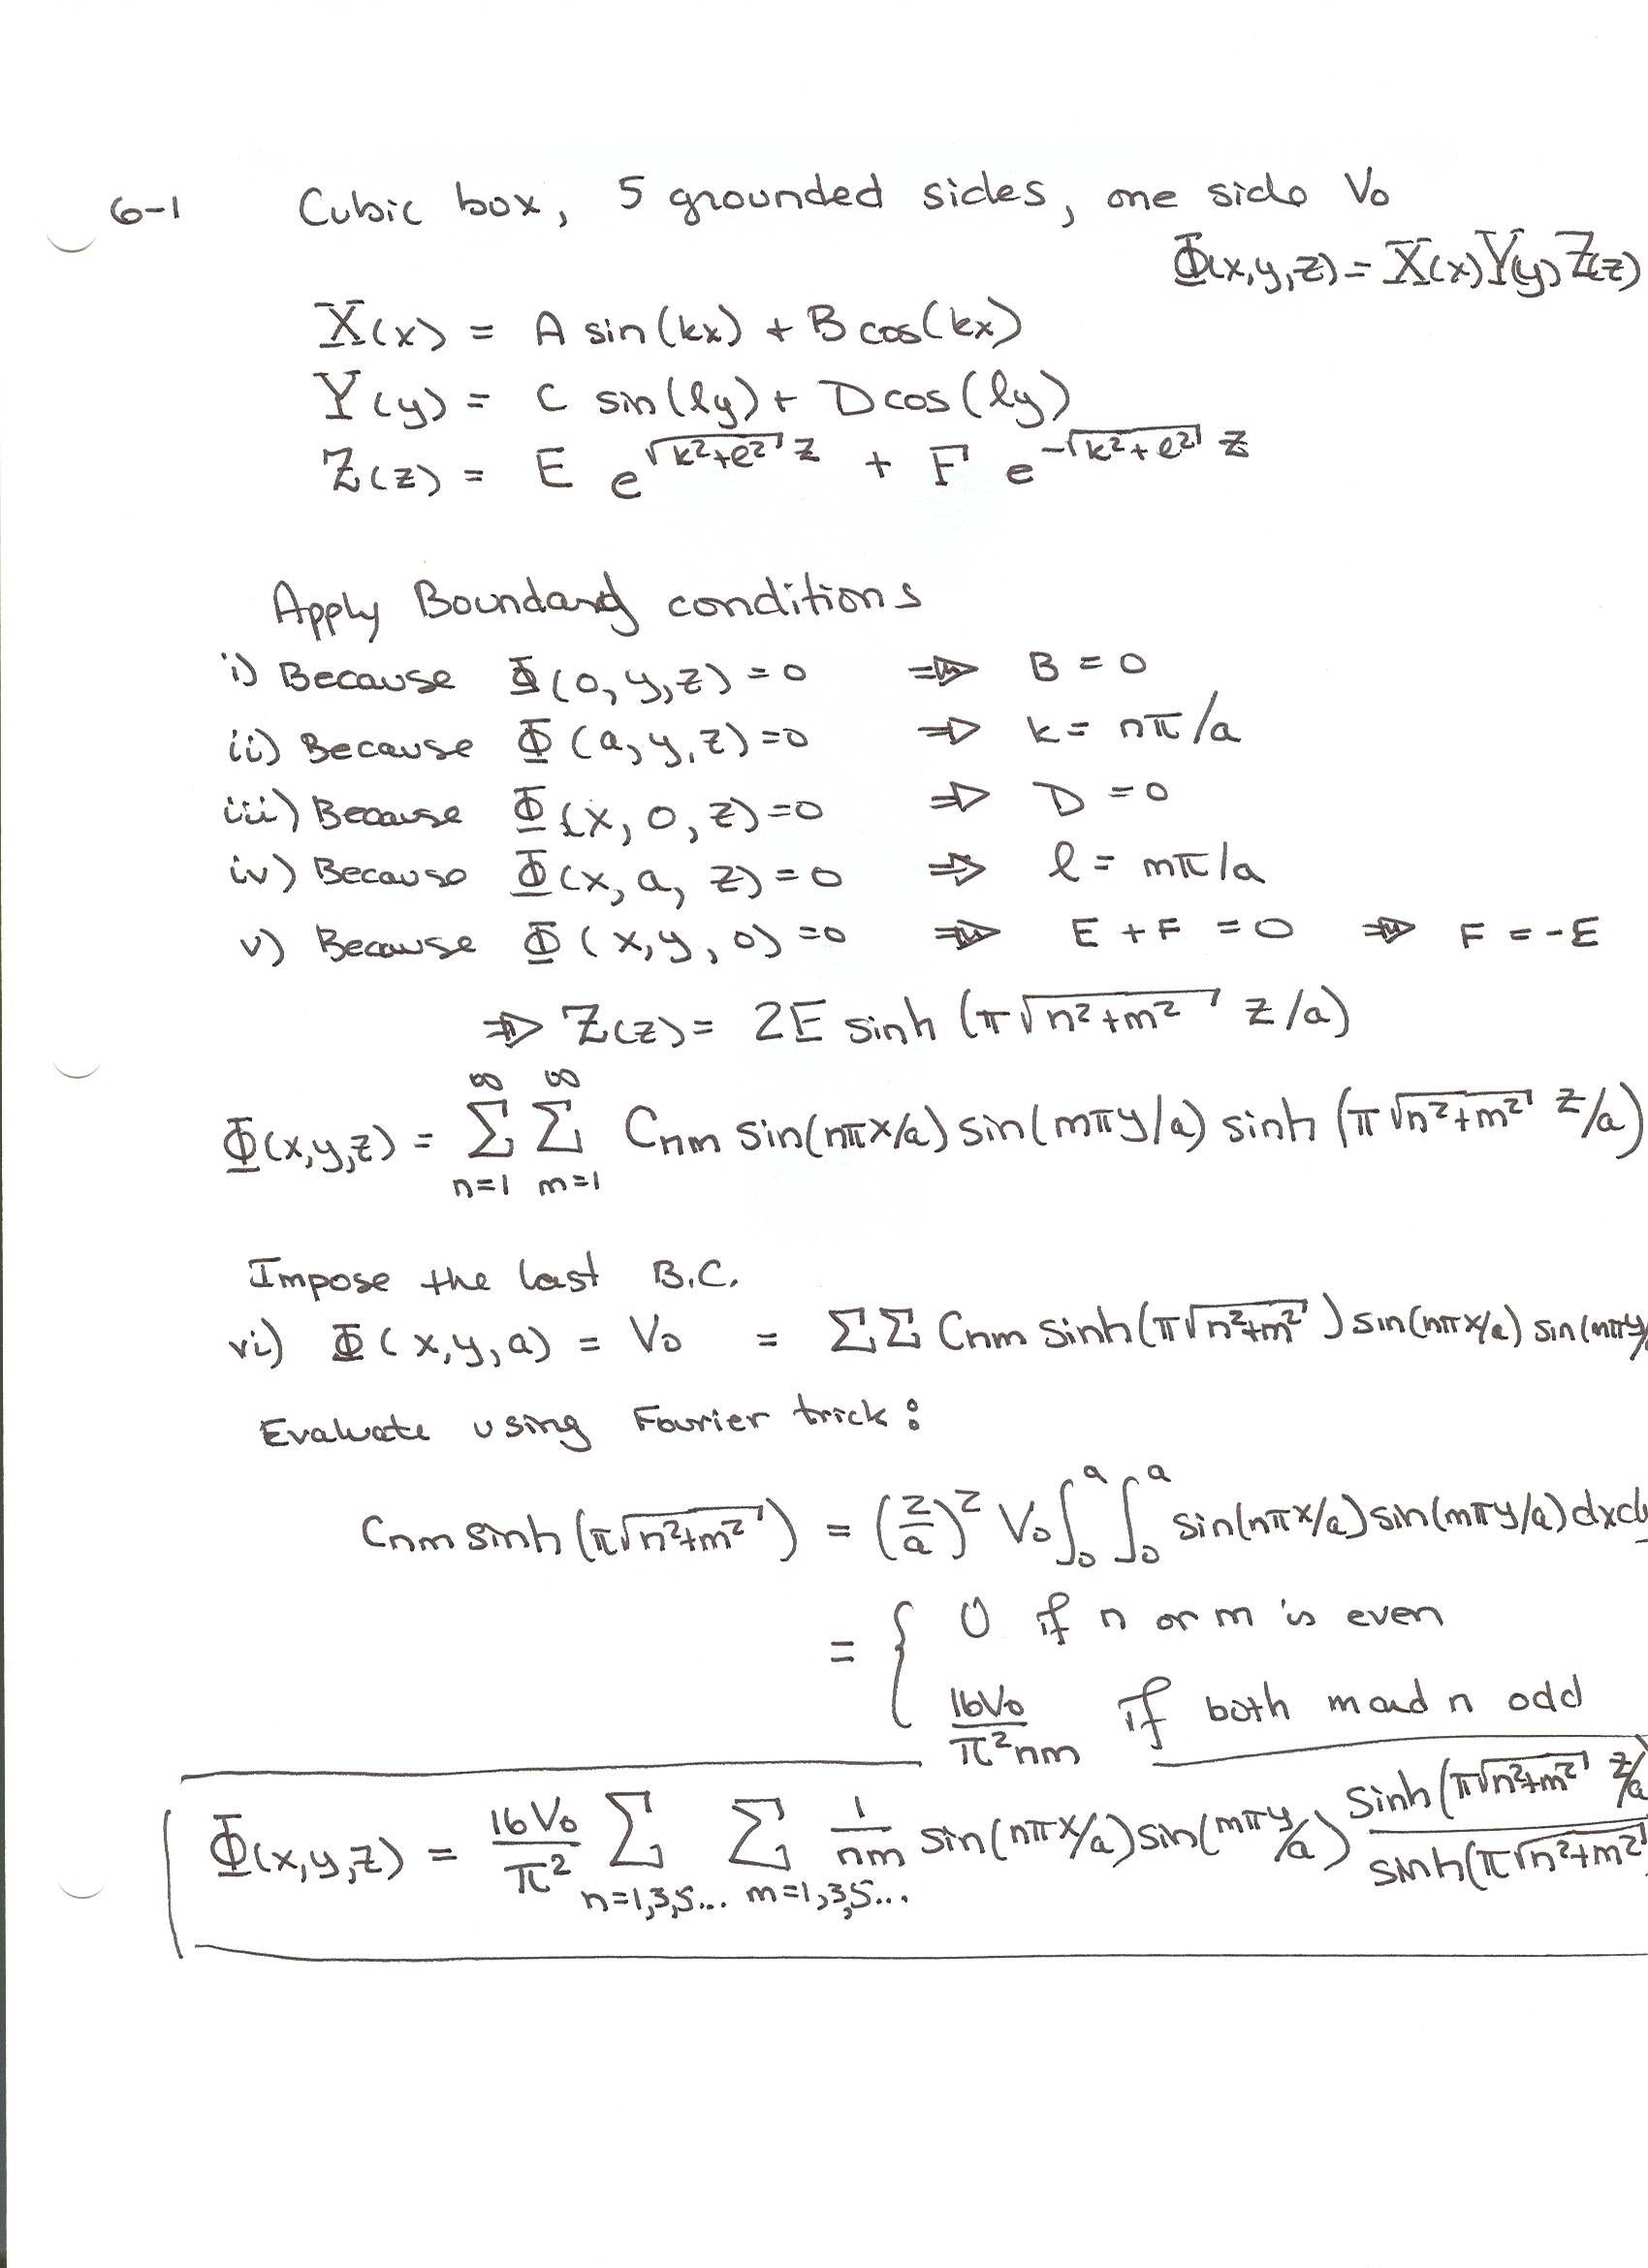 6-1 Cubic box, 5 grounded sides, one side V₀
Φ(x,y,z) = X(x)Y(y)Z(z)
X(x) = A sin(kx) + B cos(kx)
Y(y) = C sin(ly) + D cos(ly)
Z(z) = E e^{√(k²+l²) z} + F e^{-√(k²+l²) z}
Apply Boundary conditions
i) Because Φ(0,y,z)=0 ⇒ B = 0
ii) Because Φ(a,y,z)=0 ⇒ k = nπ/a
iii) Because Φ(x,0,z)=0 ⇒ D = 0
iv) Because Φ(x,a,z)=0 ⇒ l = mπ/a
v) Because Φ(x,y,0)=0 ⇒ E + F = 0 ⇒ F = -E
⇒ Z(z) = 2E sinh(π√(n²+m²) z/a)
Φ(x,y,z) = Σ_{n=1}^{∞} Σ_{m=1}^{∞} Cnm sin(nπx/a) sin(mπy/a) sinh(π√(n²+m²) z/a)
Impose the last B.C.
vi) Φ(x,y,a) = V₀ = ΣΣ Cnm sinh(π√(n²+m²)) sin(nπx/a) sin(mπy/
Evaluate using Fourier trick:
Cnm sinh(π√(n²+m²)) = (2/a)² V₀ ∫₀ᵃ ∫₀ᵃ sin(nπx/a) sin(mπy/a) dxdy
= { 0 if n or m is even
16V₀/π²nm if both m and n odd
Φ(x,y,z) = 16V₀/π² Σ_{n=1,3,5...} Σ_{m=1,3,5...} 1/nm sin(nπx/a) sin(mπy/a) sinh(π√(n²+m²) z/a) / sinh(π√(n²+m²)